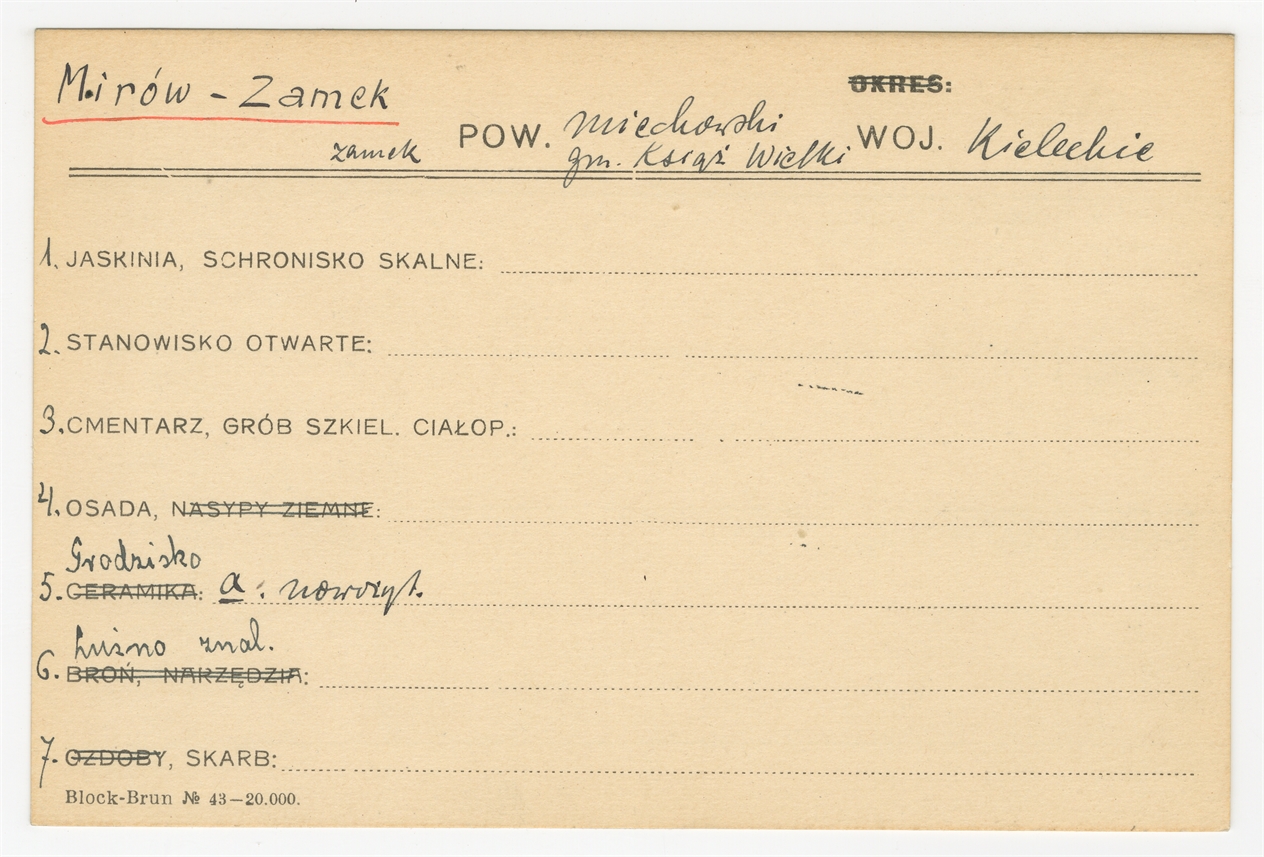 Mirów - Zamek
OKRES:
zamek POW. miechowski WOJ. Kieleckie
gm. Książ Wielki
1. JASKINIA, SCHRONISKO SKALNE:
2. STANOWISKO OTWARTE:
3. CMENTARZ, GRÓB SZKIEL. CIAŁOP.:
4. OSADA, NASYPY ZIEMNE:
Grodzisko
5. CERAMIKA: a. nowożyt.
Luźno znal.
6. BROŃ, NARZĘDZIA:
7. OZDOBY, SKARB:
Block-Brun № 43—20.000.